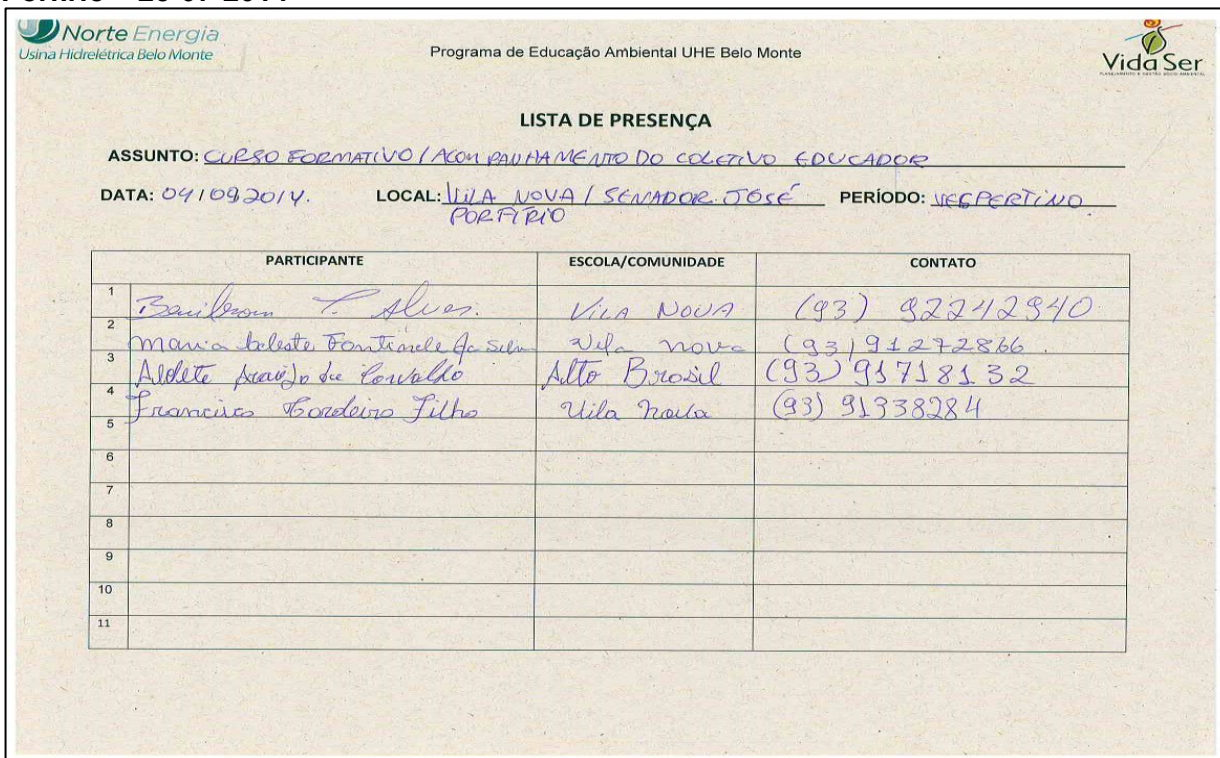 Norte Energia
Usina Hidrelétrica Belo Monte
Programa de Educação Ambiental UHE Belo Monte
Vida Ser
LISTA DE PRESENÇA
ASSUNTO: CURSO FORMATIVO / ACOMPANHAMENTO DO COLETIVO EDUCADOR
DATA: 04/09 2014. LOCAL: VILA NOVA / SENADOR JOSÉ PERÍODO: VESPERTINO
PORFÍRIO
PARTICIPANTE ESCOLA/COMUNIDADE CONTATO
1 Alves. VILA NOVA (93) 92242940
2 maria Fontinele da Silva Vila nova (93) 91272866
3 Araújo de Carvalho Alto Brasil (93) 91718132
4 Francisco Cordeiro Filho Vila Nova (93) 91338284
5
6
7
8
9
10
11